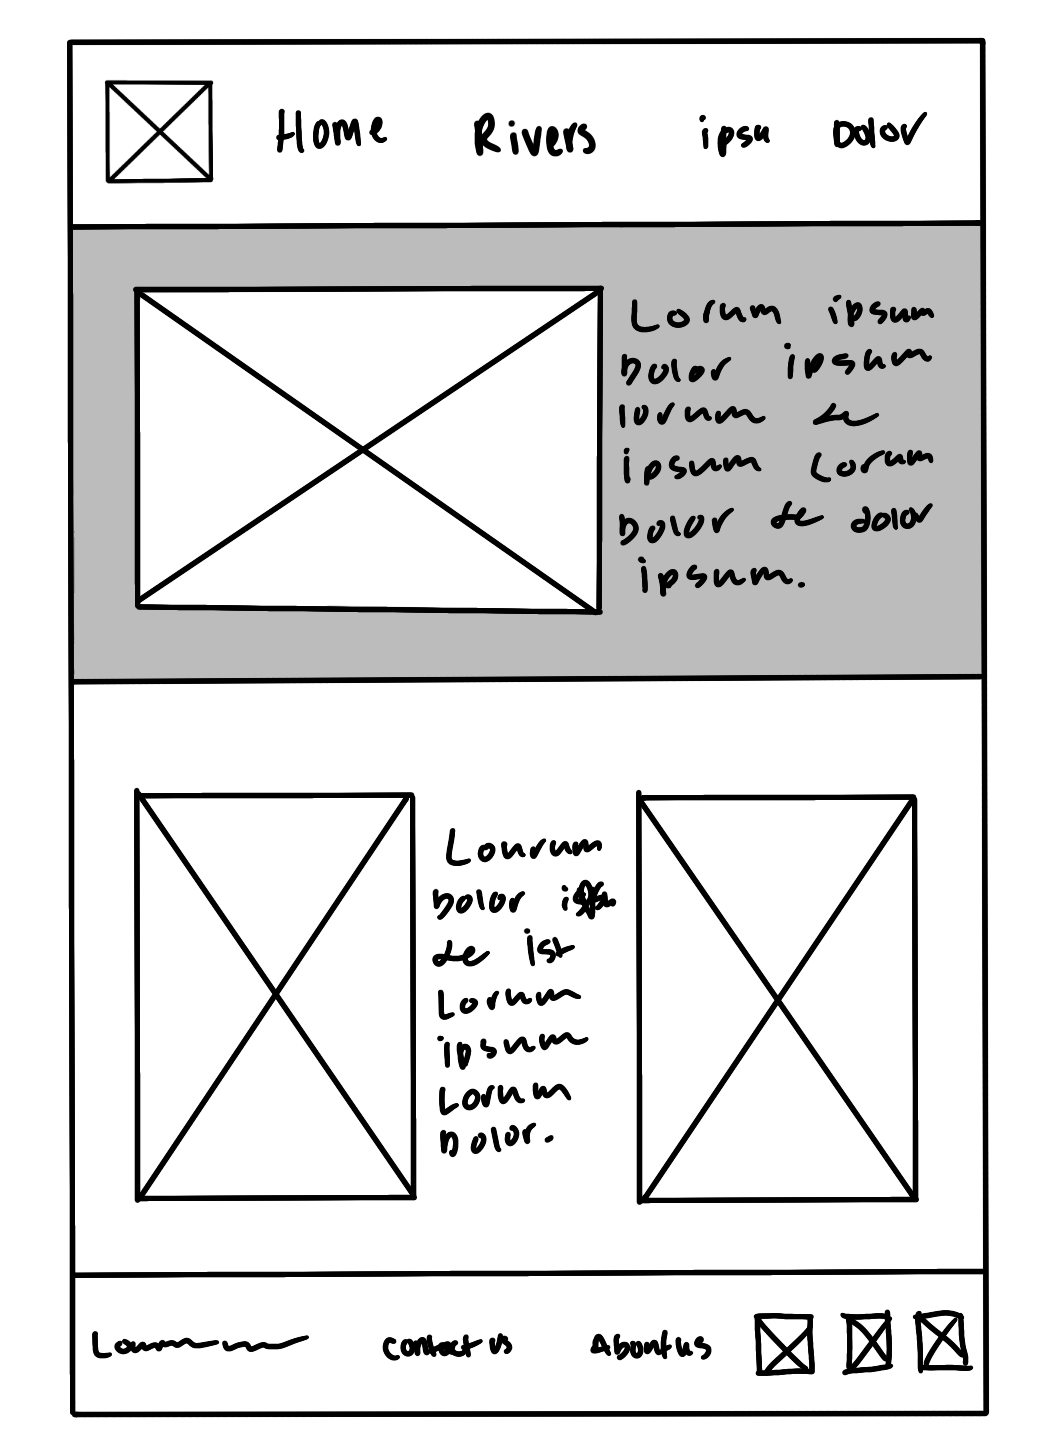 Home Rivers ipsu Dolor
Lorum ipsum
Dolor ipsum
lorum de
ipsum Lorum
Dolor de dolor
ipsum.
Lourum
Dolor
de ist
Lorum
ipsum
Lorum
Dolor.
contact us About us